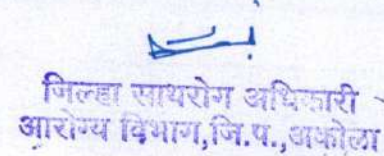 जिल्हा साथरोग अधिकारी
आरोग्य विभाग,जि.प.,अकोला